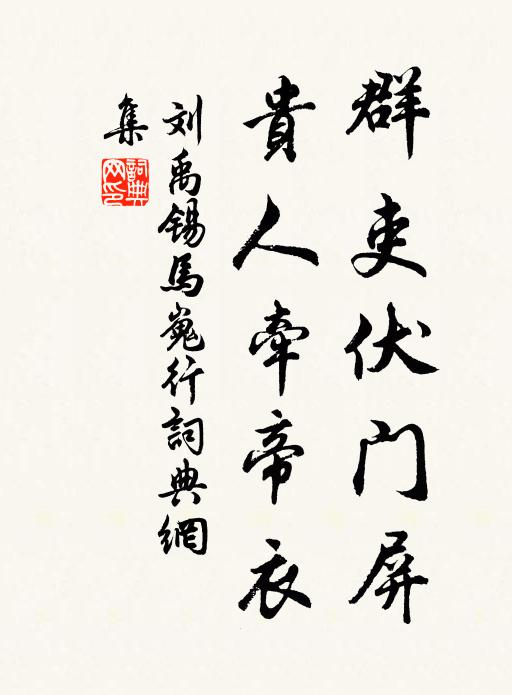 群吏伏门屏
貴人牵帝衣
刘禹锡馬嵬行詞典網
集
詞典網印